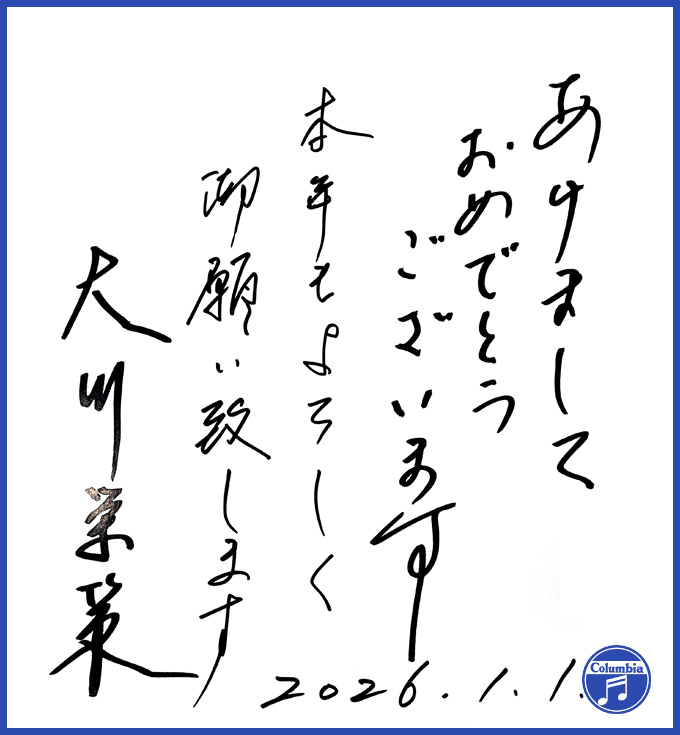 あけまして
おめでとう
ございます
本年もよろしく
御願い致します
大川栄策
2026.1.1.
Columbia